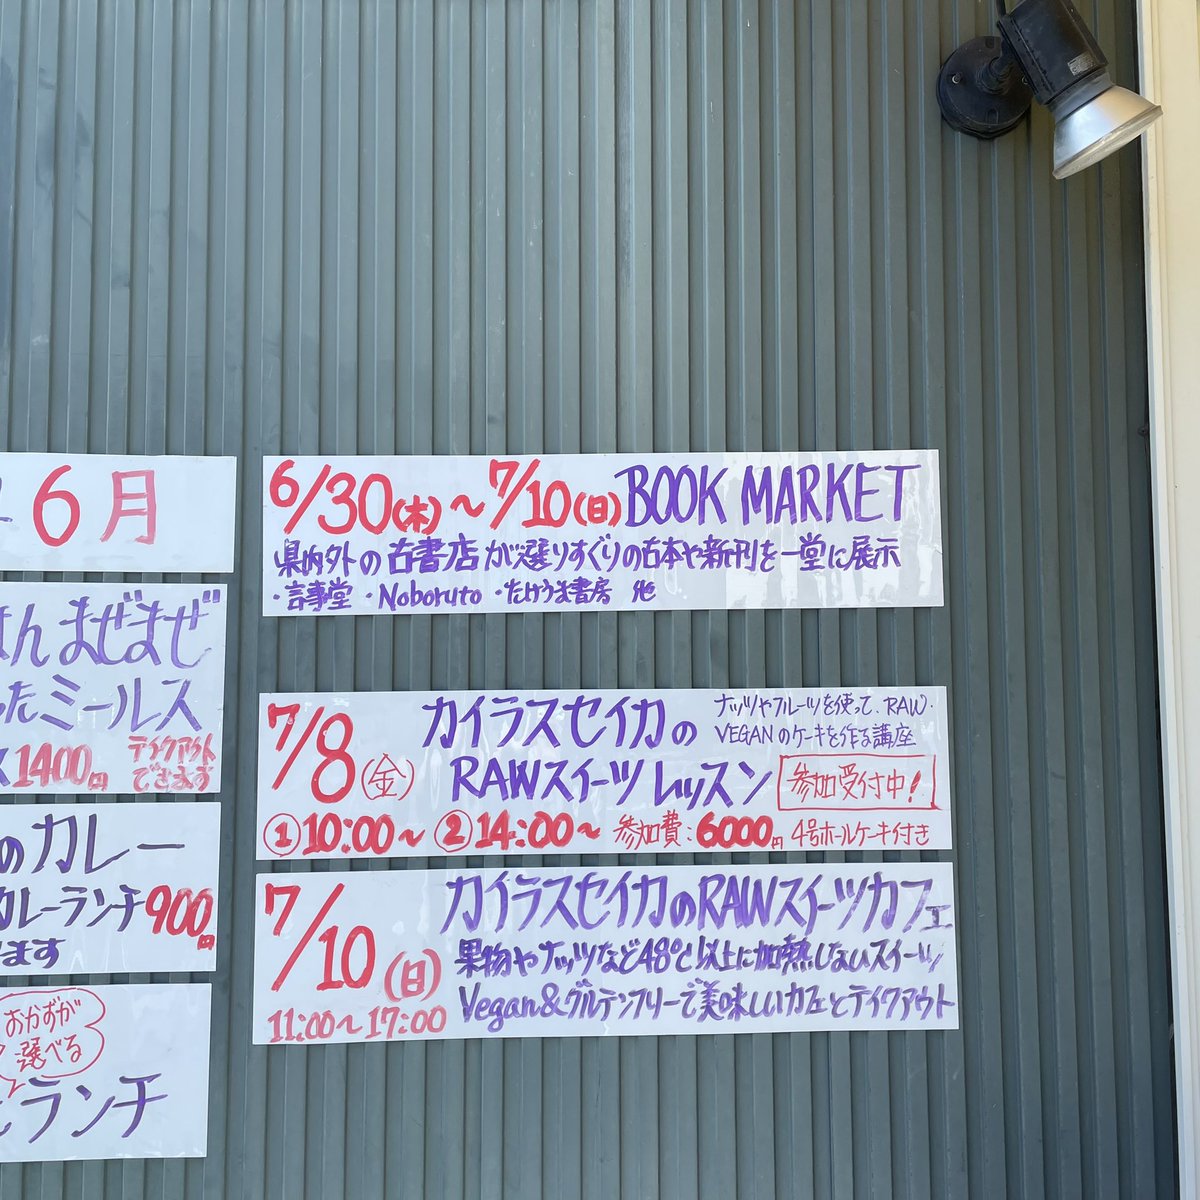 6月
まぜまぜ
ミールス
1400円 テイクアウトできます
のカレー
カレーランチ 900円
ます
おかずが
選べる
ランチ
6/30(木)〜7/10(日) BOOK MARKET
県内外の古書店が選りすぐりの古本や新刊を一堂に展示
・言事堂 ・Noboruto ・たけうま書房 他
7/8(金) カイラスセイカの
RAWスイーツレッスン
ナッツやフルーツを使って、RAW・
VEGANのケーキを作る講座
参加受付中!
①10:00〜 ②14:00〜 参加費:6000円 4号ホールケーキ付き
7/10(日) カイラスセイカのRAWスイーツカフェ
果物やナッツなど48℃以上に加熱しないスイーツ
11:00〜17:00 Vegan&グルテンフリーで美味しいカフェとテイクアウト